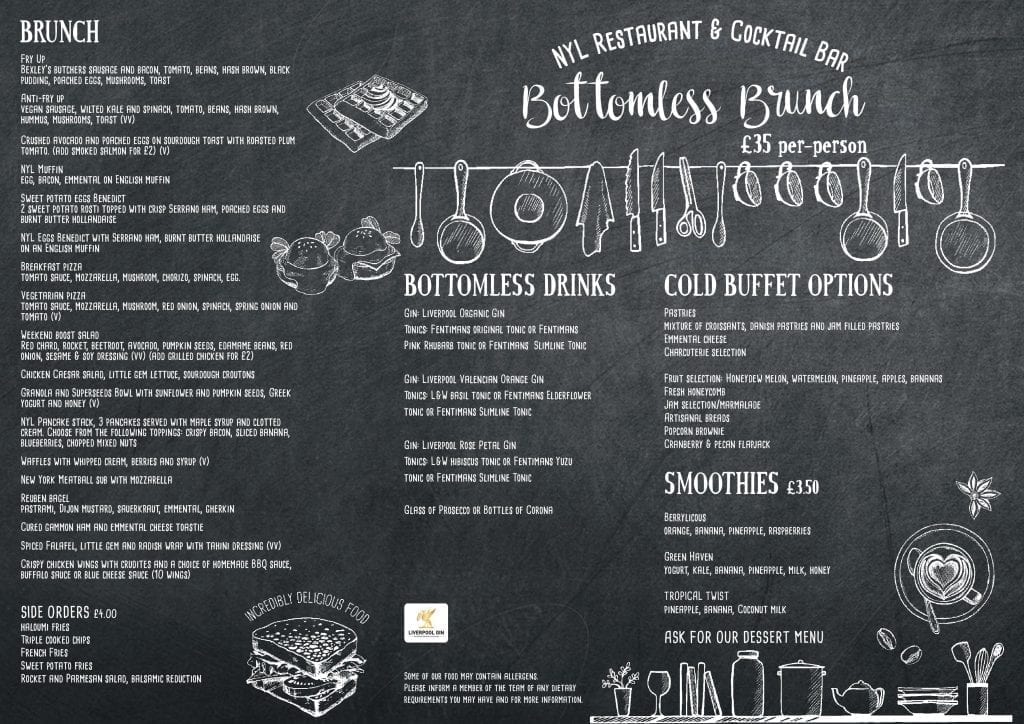 BRUNCH
Fry Up
Bexley's butchers sausage and bacon, tomato, beans, hash brown, black
pudding, poached eggs, mushrooms, toast
Anti-fry up
vegan sausage, wilted kale and spinach, tomato, beans, hash brown,
hummus, mushrooms, toast (vv)
Crushed avocado and poached eggs on sourdough toast with roasted plum
tomato. (add smoked salmon for £2) (v)
NYL Muffin
egg, bacon, emmental on English muffin
Sweet potato eggs Benedict
2 sweet potato rosti topped with crisp Serrano ham, poached eggs and
burnt butter hollandaise
NYL Eggs Benedict with Serrano ham, burnt butter hollandaise
on an English muffin
Breakfast pizza
tomato sauce, mozzarella, mushroom, chorizo, spinach, egg.
Vegetarian pizza
tomato sauce, mozzarella, mushroom, red onion, spinach, spring onion and
tomato (v)
Weekend boost salad
Red chard, rocket, beetroot, avocado, pumpkin seeds, edamame beans, red
onion, sesame & soy dressing (vv) (add grilled chicken for £2)
Chicken Caesar salad, little gem lettuce, sourdough croutons
Granola and Superseeds Bowl with sunflower and pumpkin seeds, Greek
yogurt and honey (v)
NYL Pancake stack, 3 pancakes served with maple syrup and clotted
cream. Choose from the following toppings: crispy bacon, sliced banana,
blueberries, chopped mixed nuts
Waffles with whipped cream, berries and syrup (v)
New York Meatball sub with mozzarella
Reuben bagel
pastrami, Dijon mustard, sauerkraut, emmental, gherkin
Cured gammon ham and emmental cheese toastie
Spiced Falafel, little gem and radish wrap with tahini dressing (vv)
Crispy chicken wings with crudites and a choice of homemade BBQ sauce,
buffalo sauce or blue cheese sauce (10 wings)
SIDE ORDERS £4.00
haloumi fries
Triple cooked chips
French Fries
Sweet potato fries
Rocket and Parmesan salad, balsamic reduction
INCREDIBLY DELICIOUS FOOD
NYL Restaurant & Cocktail Bar
Bottomless Brunch
£35 per-person
BOTTOMLESS DRINKS
Gin: Liverpool Organic Gin
Tonics: Fentimans original tonic or Fentimans
Pink Rhubarb tonic or Fentimans Slimline Tonic
Gin: Liverpool Valencian Orange Gin
Tonics: L&W basil tonic or Fentimans Elderflower
tonic or Fentimans Slimline Tonic
Gin: Liverpool Rose Petal Gin
Tonics: L&W hibiscus tonic or Fentimans Yuzu
tonic or Fentimans Slimline Tonic
Glass of Prosecco or Bottles of Corona
LIVERPOOL GIN
Some of our food may contain allergens.
Please inform a member of the team of any dietary
requirements you may have and for more information.
COLD BUFFET OPTIONS
Pastries
mixture of croissants, danish pastries and jam filled pastries
Emmental cheese
Charcuterie selection
Fruit selection: Honeydew melon, watermelon, pineapple, apples, bananas
Fresh honeycomb
Jam selection/marmalade
Artisanal breads
Popcorn brownie
Cranberry & pecan flapjack
SMOOTHIES £3.50
Berrylicous
orange, banana, pineapple, raspberries
Green Haven
yogurt, kale, banana, pineapple, milk, honey
TROPICAL TWIST
pineapple, banana, Coconut milk
ASK FOR OUR DESSERT MENU